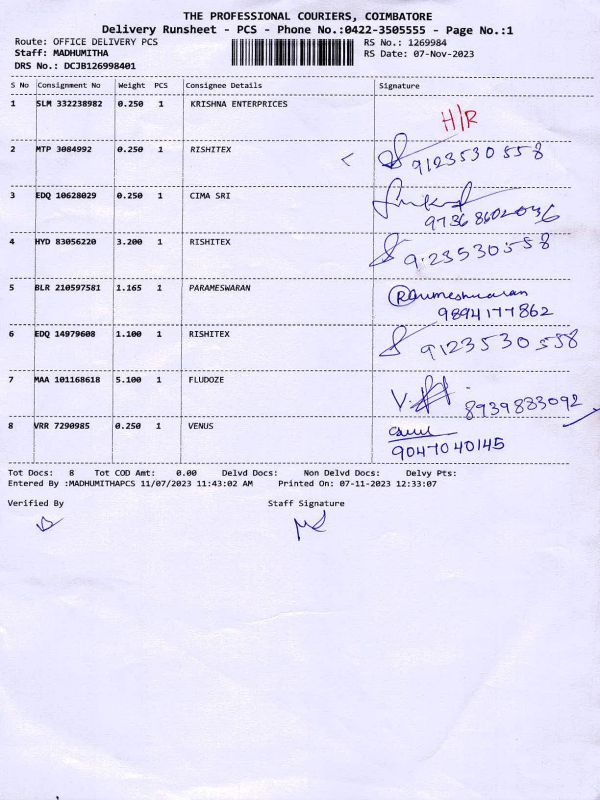 THE PROFESSIONAL COURIERS, COIMBATORE
Delivery Runsheet - PCS - Phone No.:0422-3505555 - Page No.:1
Route: OFFICE DELIVERY PCS RS No.: 1269984
Staff: MADHUMITHA RS Date: 07-Nov-2023
DRS No.: DCJB126998401
S No Consignment No Weight PCS Consignee Details Signature
1 SLM 332238982 0.250 1 KRISHNA ENTERPRICES H/R
2 MTP 3084992 0.250 1 RISHITEX 9123530558
3 EDQ 10628029 0.250 1 CIMA SRI
97368602036
4 HYD 83056220 3.200 1 RISHITEX 9123530558
5 BLR 210597581 1.165 1 PARAMESWARAN Parumeshwaran
9894177862
6 EDQ 14979608 1.100 1 RISHITEX 9123530558
7 MAA 101168618 5.100 1 FLUDOZE 8939883092
8 VRR 7290985 0.250 1 VENUS
9047040145
Tot Docs: 8 Tot COD Amt: 0.00 Delvd Docs: Non Delvd Docs: Delvy Pts:
Entered By :MADHUMITHAPCS 11/07/2023 11:43:02 AM Printed On: 07-11-2023 12:33:07
Verified By Staff Signature